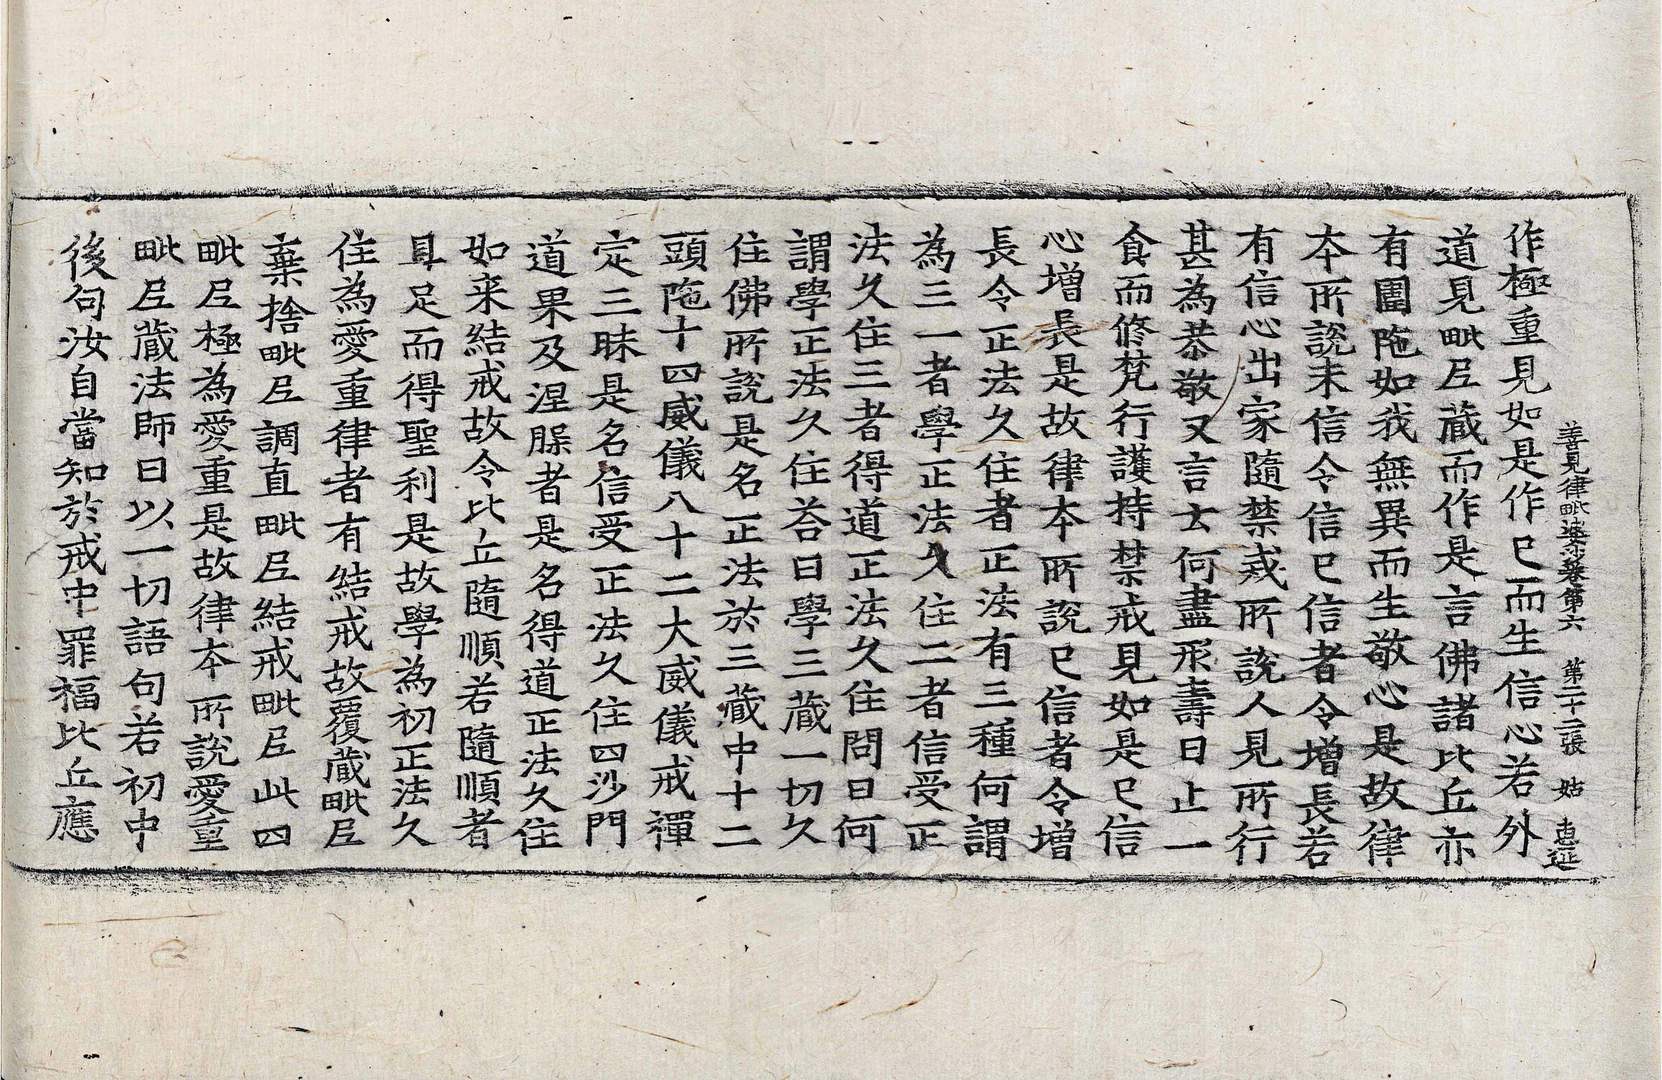 善見律毗婆沙卷第六 第二十二張 姑 惠延
作極重見如是作已而生信心若外
道見毗尼藏而作是言佛諸比丘亦
有圍陁如我無異而生敬心是故律
本所說未信令信已信者令增長若
有信心出家隨禁戒所說人見所行
甚為恭敬又言云何盡形壽日止一
食而修梵行護持禁戒見如是已信
心增長是故律本所說已信者令增
長令正法久住者正法有三種何謂
為三一者學正法久住二者信受正
法久住三者得道正法久住問曰何
謂學正法久住荅曰學三藏一切久
住佛所說是名正法於三藏中十二
頭陁十四威儀八十二大威儀戒禪
定三昧是名信受正法久住四沙門
道果及涅槃者是名得道正法久住
如来結戒故令比丘隨順若隨順者
具足而得聖利是故學為初正法久
住為愛重律者有結戒故覆藏毗尼
棄捨毗尼調直毗尼結戒毗尼此四
毗尼極為愛重是故律本所說愛重
毗尼藏法師曰以一切語句若初中
後句汝自當知於戒中罪福比丘應